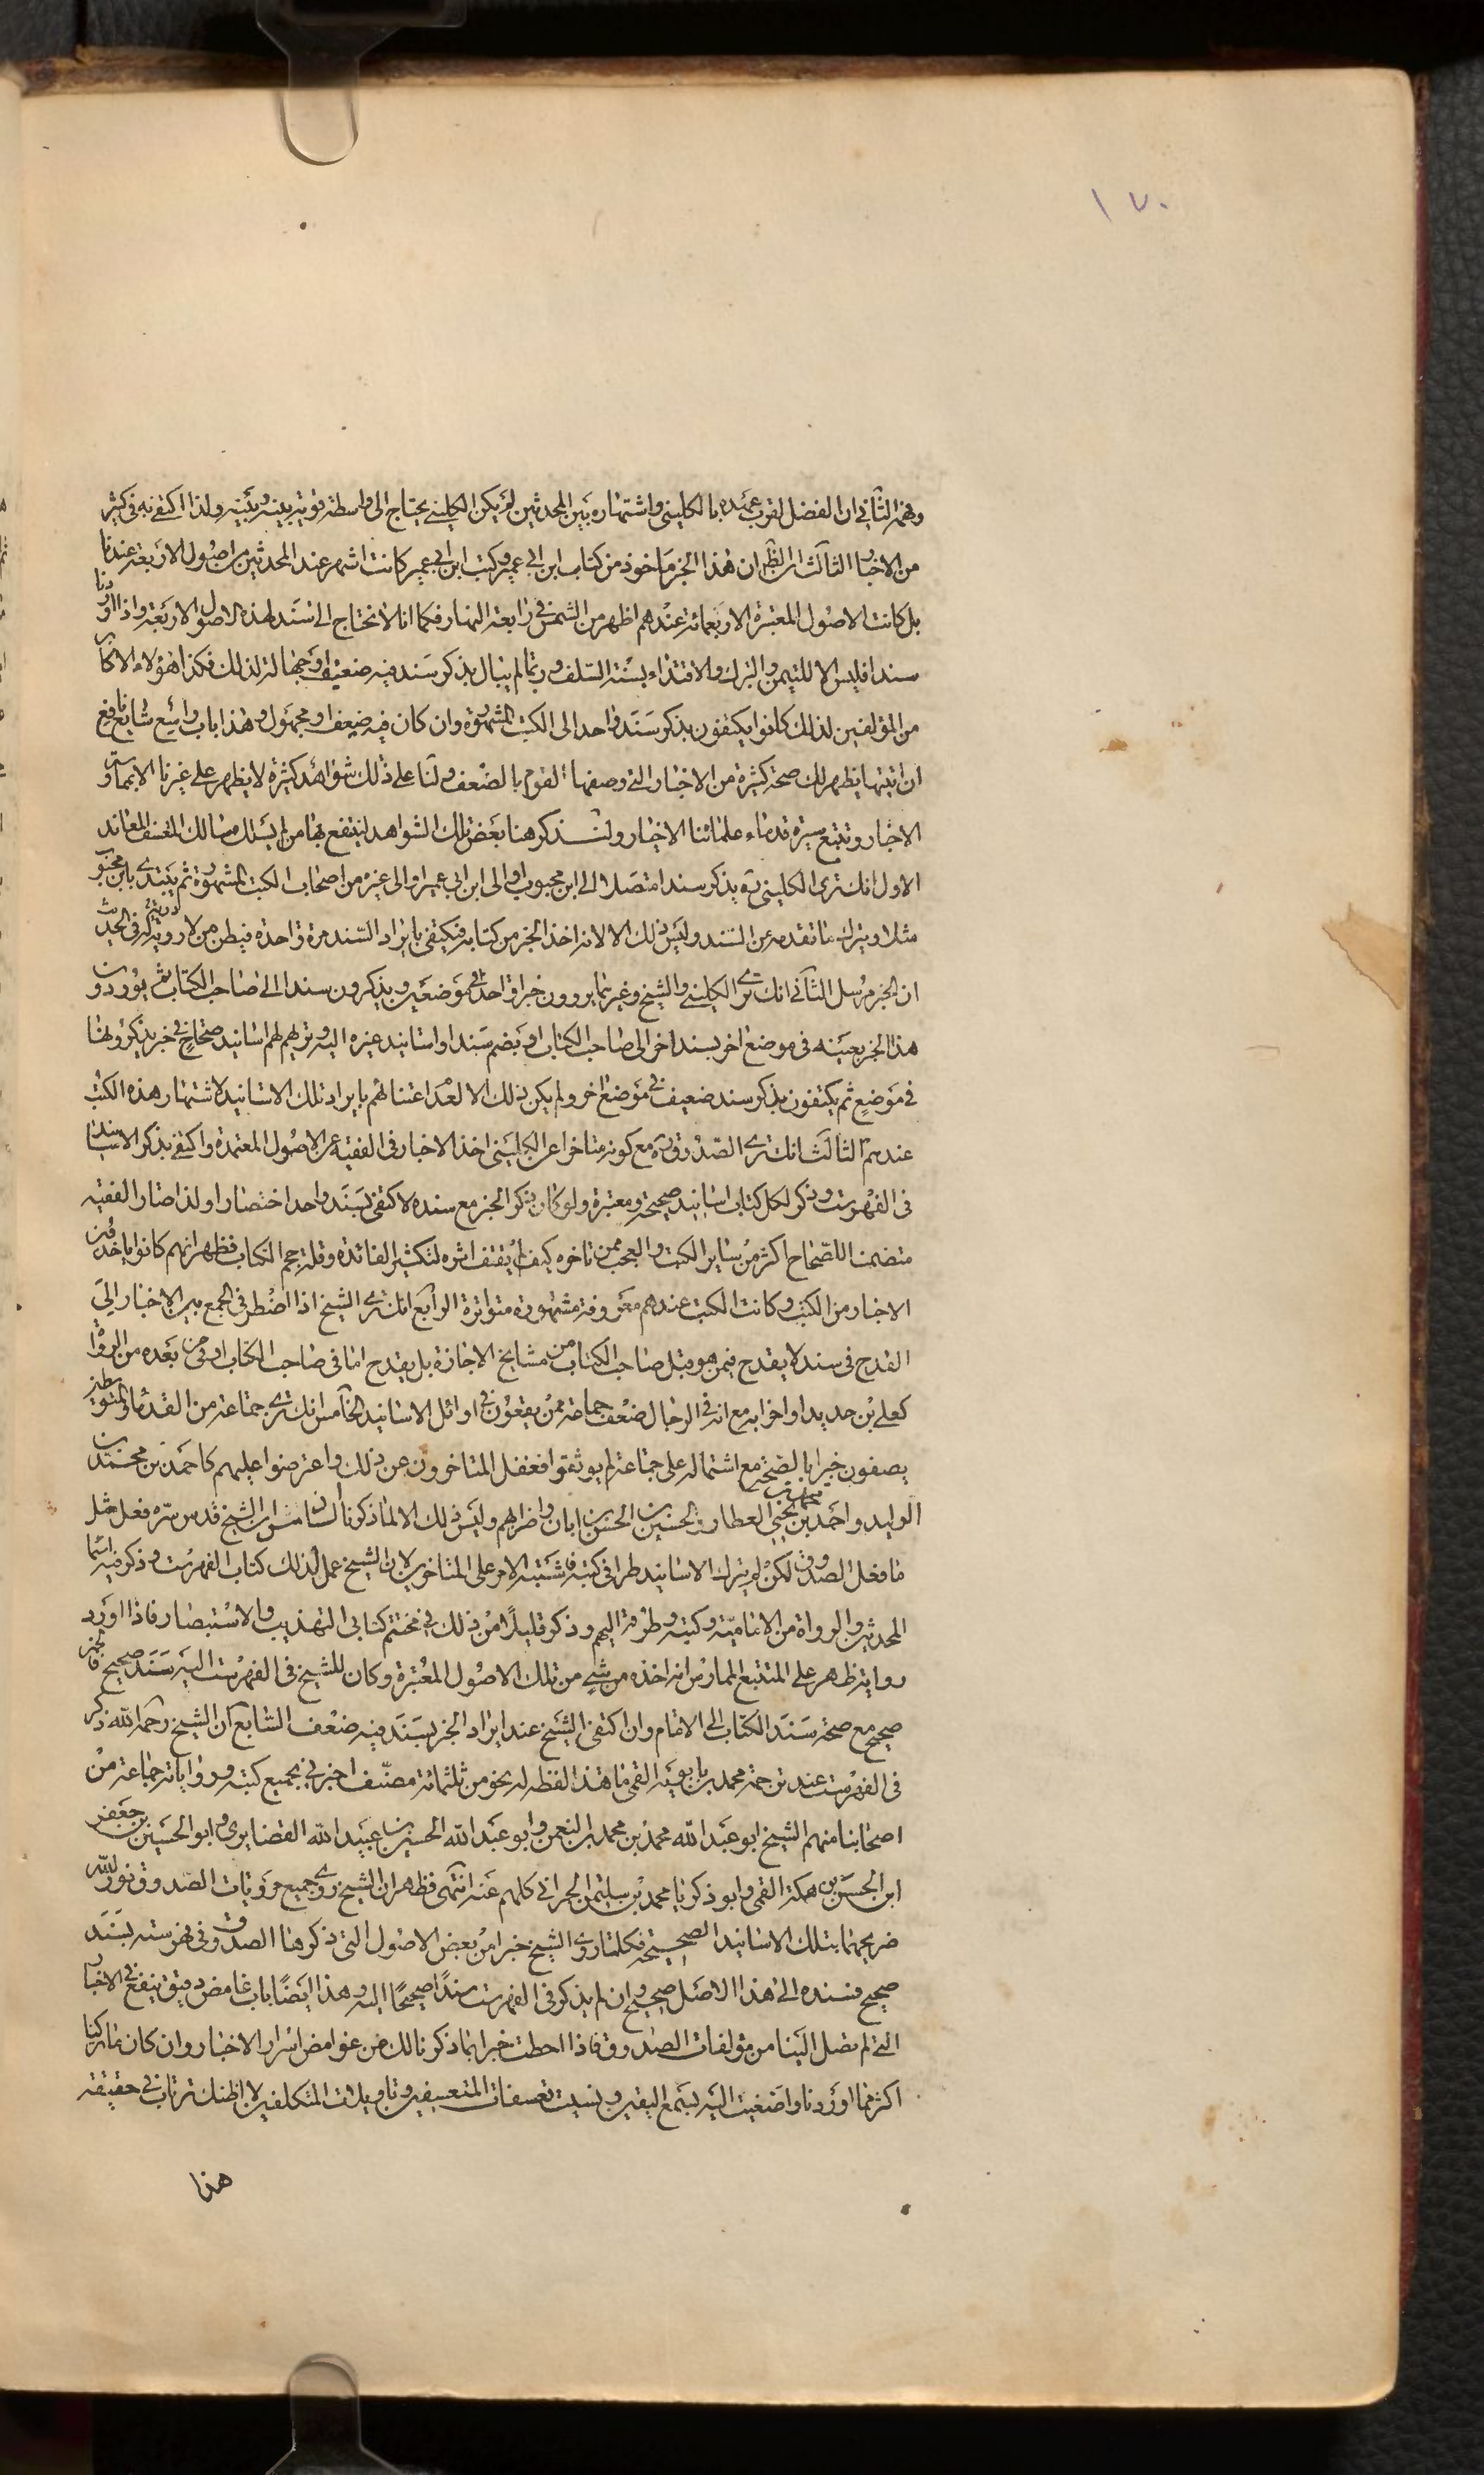 ١٧٠
وفهم الثاني ان الفضل لقرب عهده بالكليني واشتهاره بين المحدثين لم يكن الكليني يحتاج الى واسطة قوية بينه وبينه ولذا اكتفى به في كثير
من الاخبار الثالث ان الظ ان هذا الخبر ماخوذ من كتاب ابن ابي عمير وكتب ابن ابي عمير كانت اشهر عند المحدثين من اصول الاربعة عندنا
بل كانت الاصول المعتبرة الاربعمائة عندهم اظهر من الشمس في رابعة النهار فكما انا لا نحتاج الى سند لهذه الاصول الاربعة واذا اوردنا
سندا فليس الا للتيمن والتبرك والاقتداء بسنة السلف وربما لم يبال بذكر سند فيه ضعيف او جهالة لذلك فكذا هؤلاء الاكابر
من المؤلفين لذلك كانوا يكتفون بذكر سند واحد الى الكتب المشهورة وان كان فيه ضعيف او مجهول وهذا باب واسع شايع نافع
ان اتيتها يظهر لك صحة كثيرة من الاخبار التي وصفها القوم بالضعف ولنا على ذلك شواهد كثيرة لا يظهر على غيرنا الا بممارسة
الاخبار وتتبع سيرة قدماء علمائنا الاخيار ولنذكر هنا بعض تلك الشواهد لينتفع بها من لم يسلك مسالك المتعسف المعاند
الاول انك ترى الكليني ره يذكر سندا متصلا الى ابن محبوب او الى ابن ابي عمير او الى غيره من اصحاب الكتب المشهورة ثم يبتدئ بابن محبوب
مثلا ويترك ما تقدمه من السند وليس ذلك الا لانه اخذ الخبر من كتابه فيكتفي بايراد السند مرة واحدة فيظن من لا دربة له في الحديث
ان الخبر مرسل الثاني انك ترى الكليني والشيخ وغيرهما يروون خبرا واحدا في موضعين ويذكرون سندا الى صاحب الكتاب ثم يوردون
هذا الخبر بعينه في موضع اخر بسند اخر الى صاحب الكتاب او يضم سندا او اسانيد غيره اليه وتريهم لهم اسانيد صحاح في خبر يذكرونها
في موضع ثم يكتفون بذكر سند ضعيف في موضع اخر ولم يكن ذلك الا لعدم اعتنائهم بايراد تلك الاسانيد لاشتهار هذه الكتب
عندهم الثالث انك ترى الصدوق ره مع كونه متاخرا عن الكليني اخذ الاخبار في الفقيه عن الاصول المعتمدة واكتفى بذكر الاسانيد
في الفهرست وذكر لكل كتاب اسانيد صحيحة ومعتبرة ولو كان ذكر الخبر مع سنده لاكتفى بسند واحد اختصارا ولذا صار الفقيه
متضمنا للصحاح اكثر من ساير الكتب والعجب ممن تاخره كيف لم يقتف اثره لتكثير الفائدة وقلة حجم الكتاب فظهر انهم كانوا ياخذون
الاخبار من الكتب وكانت الكتب عندهم معروفة مشهورة متواترة الرابع انك ترى الشيخ اذا اضطر في الجمع بين الاخبار الى
القدح في سند لا يقدح فيمن هو قبل صاحب الكتاب من مشايخ الاجازة بل يقدح اما في صاحب الكتاب او في من بعده من الرواة
كعلي بن حديد واضرابه مع انه في الرجال ضعف جماعة ممن يقعون في اوائل الاسانيد الخامس انك ترى جماعة من القدماء والمتوسطين
يصفون خبرا بالصحة مع اشتماله على جماعة لم يوثقوا فغفل المتاخرون عن ذلك واعترضوا عليهم كاحمد بن محمد بن
الوليد واحمد بن محمد بن يحيى العطار والحسين بن الحسن بن ابان واضرابهم وليس ذلك الا لما ذكرنا السادس ان الشيخ قدس سره فعل مثل
ما فعل الصدوق لكن لم يترك الاسانيد طرا في كتبه فاشتبه الامر على المتاخرين لان الشيخ عمل لذلك كتاب الفهرست وذكر فيه اسماء
المحدثين والرواة من الامامية وكتبهم وطرقه اليهم وذكر قليلا من ذلك في مختتم كتابي التهذيب والاستبصار فاذا اورد
رواية ظهر على المتتبع الممارس انه اخذه من شيء من تلك الاصول المعتبرة وكان للشيخ في الفهرست اليه سند صحيح فالخبر
صحيح مع صحة سند الكتاب الى الامام وان اكتفى الشيخ عند ايراد الخبر بسند فيه ضعف السابع ان الشيخ رحمه الله ذكر
في الفهرست عند ترجمة محمد بن بابويه القمي ما هذا لفظه له نحو من ثلثمائة مصنف اخبرني بجميع كتبه ورواياته جماعة من
اصحابنا منهم الشيخ ابو عبد الله محمد بن محمد بن النعمن وابو عبد الله الحسين بن عبيد الله الغضايري وابو الحسين بن جعفر
ابن الحسن بن حسكة القمي وابو زكريا محمد بن سليمن الحراني كلهم عنه انتهى فظهر ان الشيخ روى جميع مرويات الصدوق نور الله
ضريحهما بتلك الاسانيد الصحيحة فكلما روى الشيخ خبرا من بعض الاصول التي ذكرها الصدوق في فهرسته بسند
صحيح فسنده الى هذا الاصل صحيح وان لم يذكر في الفهرست سندا صحيحا اليه وهذا ايضا باب غامض دقيق ينفع في الاخبار
التي لم تصل الينا من مؤلفات الصدوق فاذا احطت خبرا بما ذكرنا لك من غوامض اسرار الاخبار وان كان ما تركنا
اكثر مما اوردنا واصغيت اليه بسمع اليقين ونسيت تعسفات المتعسفين وتاويلات المتكلفين لا اظنك ترتاب في حقيقة
هذا